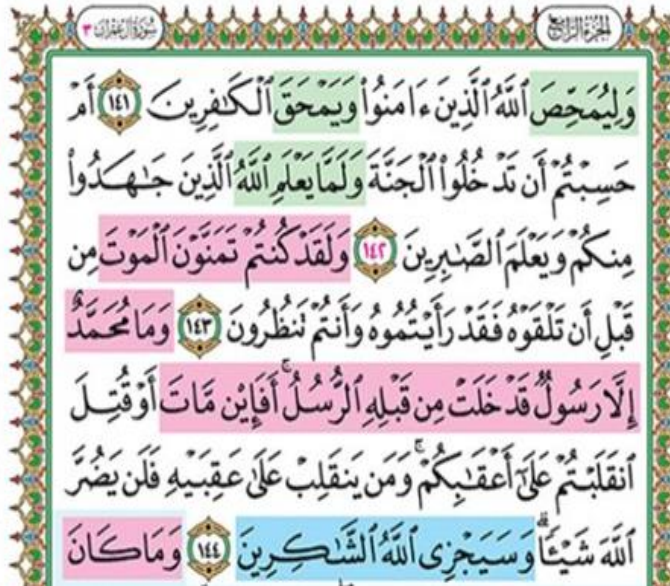 الجزء الرابع
سورة آل عمران ٣
وَلِيُمَحِّصَ ٱللَّهُ ٱلَّذِينَ ءَامَنُوا۟ وَيَمْحَقَ ٱلْكَٰفِرِينَ ١٤١ أَمْ
حَسِبْتُمْ أَن تَدْخُلُوا۟ ٱلْجَنَّةَ وَلَمَّا يَعْلَمِ ٱللَّهُ ٱلَّذِينَ جَٰهَدُوا۟
مِنكُمْ وَيَعْلَمَ ٱلصَّٰبِرِينَ ١٤٢ وَلَقَدْ كُنتُمْ تَمَنَّوْنَ ٱلْمَوْتَ مِن
قَبْلِ أَن تَلْقَوْهُ فَقَدْ رَأَيْتُمُوهُ وَأَنتُمْ تَنظُرُونَ ١٤٣ وَمَا مُحَمَّدٌ
إِلَّا رَسُولٌ قَدْ خَلَتْ مِن قَبْلِهِ ٱلرُّسُلُ ۚ أَفَإِي۟ن مَّاتَ أَوْ قُتِلَ
ٱنقَلَبْتُمْ عَلَىٰٓ أَعْقَٰبِكُمْ ۚ وَمَن يَنقَلِبْ عَلَىٰ عَقِبَيْهِ فَلَن يَضُرَّ
ٱللَّهَ شَيْـًٔا ۗ وَسَيَجْزِى ٱللَّهُ ٱلشَّٰكِرِينَ ١٤٤ وَمَا كَانَ